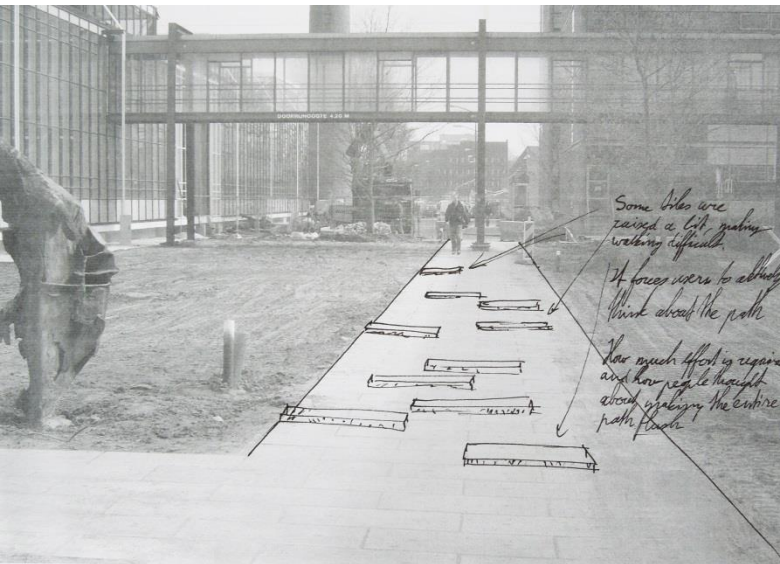 DOORRIJHOOGTE 4.20 M
Some tiles are
raised a bit, making
walking difficult.
It forces users to actively
think about the path
How much effort is required
and how people thought
about making the entire
path flush